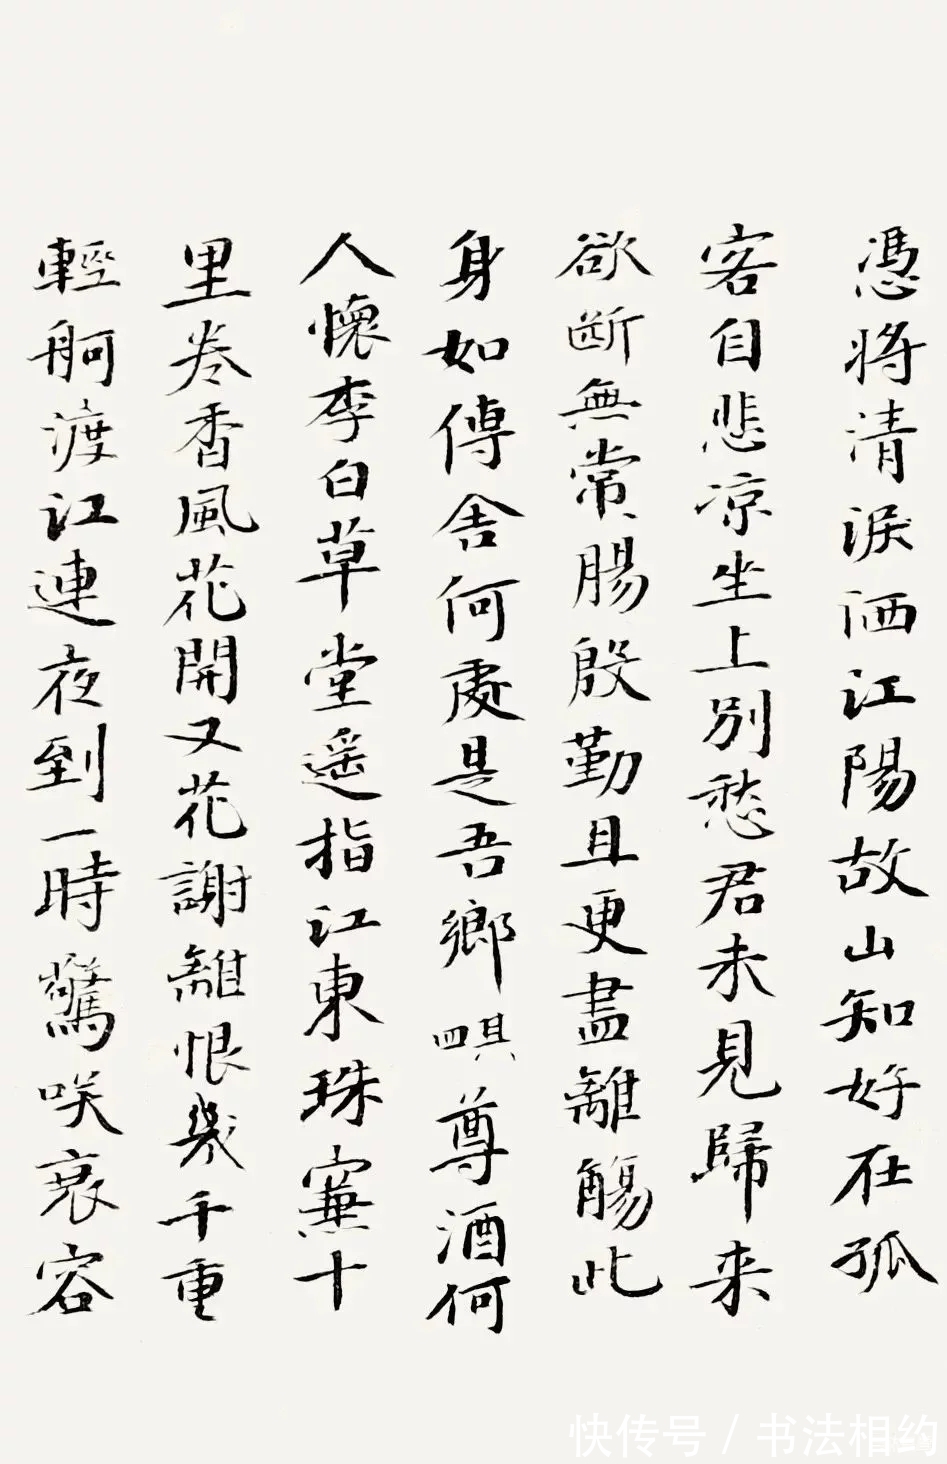 憑將清淚洒江陽故山知好在孤
客自悲凉坐上別愁君未見歸来
欲斷無常腸殷勤且更盡離觴此
身如傳舍何處是吾鄉畎尊酒何
人懷李白草堂遥指江東珠簾十
里卷香風花開又花謝離恨幾千重
輕舸渡江連夜到一時驚咲衰容
快传号 / 书法相约